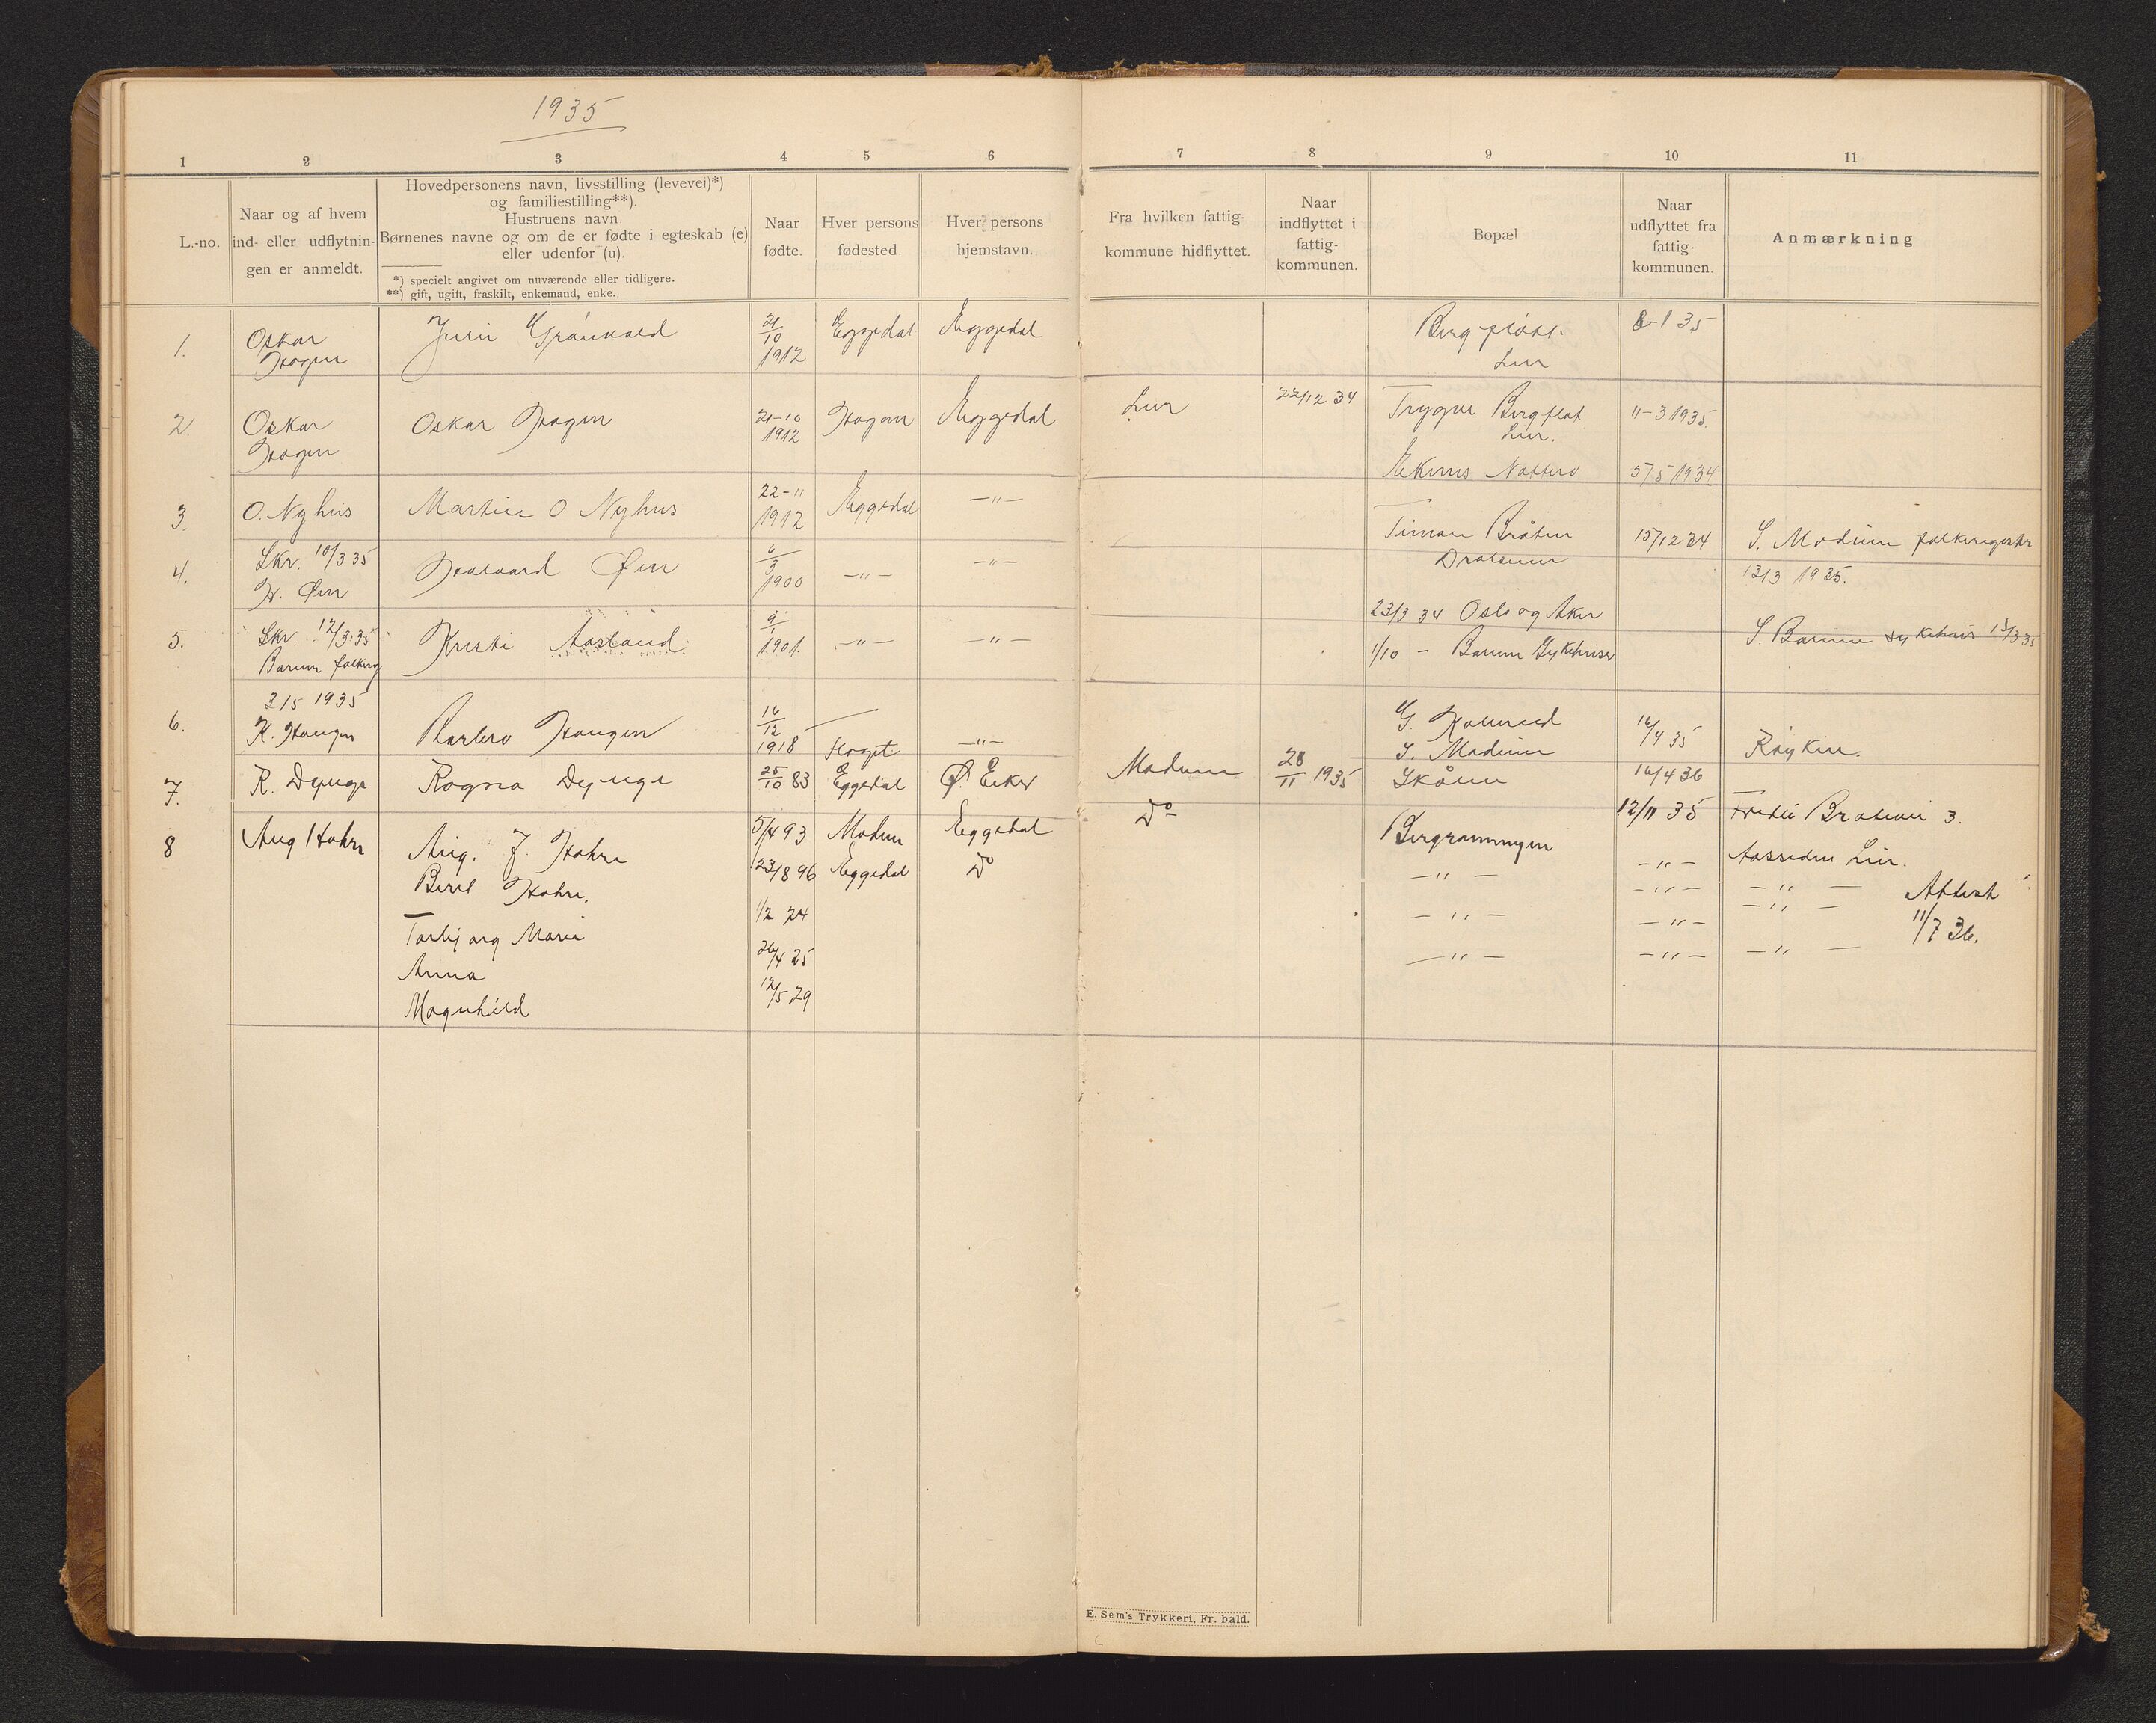 1935
1 2 3 4 5 6
L.-no.
Naar og af hvem
ind- eller udflytnin-
gen er anmeldt.
Hovedpersonens navn, livsstilling (levevei)*)
og familiestilling**).
Hustruens navn
Børnenes navne og om de er fødte i egteskab (e)
eller udenfor (u).
*) specielt angivet om nuværende eller tidligere.
**) gift, ugift, fraskilt, enkemand, enke.
Naar
fødte.
Hver persons
fødested.
Hver persons
hjemstavn.
1.
Oskar
Hagen
21/10
1912
Eggedal
Eggedal
2.
Oskar
Hagen
Oskar Hagen
21-10
1912
Hagen
Eggedal
3.
O. Nyhus
Martin O Nyhus
22-11
1912
Eggedal
-"-
4.
Skr. 10/3 35
H. Øen
Halvard Øen
6/3
1900
-"-
-"-
5.
Skr. 12/3 35
Bærum folkereg
Kristi Aasland
9/1
1901.
-"-
-"-
6.
3/5 1935
K. Haugen
Barbro Haugen
16/12
1918
-"-
7.
Ragna
25/10 83
Eggedal
Ø. Eiker
8
Aug Hahre
Aug. J. Hahre
5/4 93
Modum
Eggedal
Beret Hahre.
23/8 96
Eggedal
Do
Torbjørg Marie
1/2 24
Anna
26/4 25
Magnhild
12/5 29
7 8 9 10 11
Fra hvilken fattig-
kommune hidflyttet.
Naar
indflyttet i
fattig-
kommunen.
Bopæl
Naar
udflyttet fra
fattig-
kommunen.
Anmærkning
Lier
8-1 35
Lier
22/12 34
Trygve Bergflat
Lier.
11-3 1935.
Nøtterø
5/5 1934
Simon Bråten
Drolsum
15/12 34
S. Modum folkeregister
13/3 1935.
23/3 34 Oslo og Aker
1/10 - Bærum Sykehuser
S. Bærum sykehus 13/3 35
S. Modum
16/4 35
Røyken.
Modum
28/11 1935
Skålen
16/4 36
Do
12/11 35
3.
-"-
-"-
Lier.
-"-
-"-
-"-
Attest
-"-
-"-
-"-
11/7 36.
-"-
-"-
-"-
E. Sem's Trykkeri, Fr.hald.